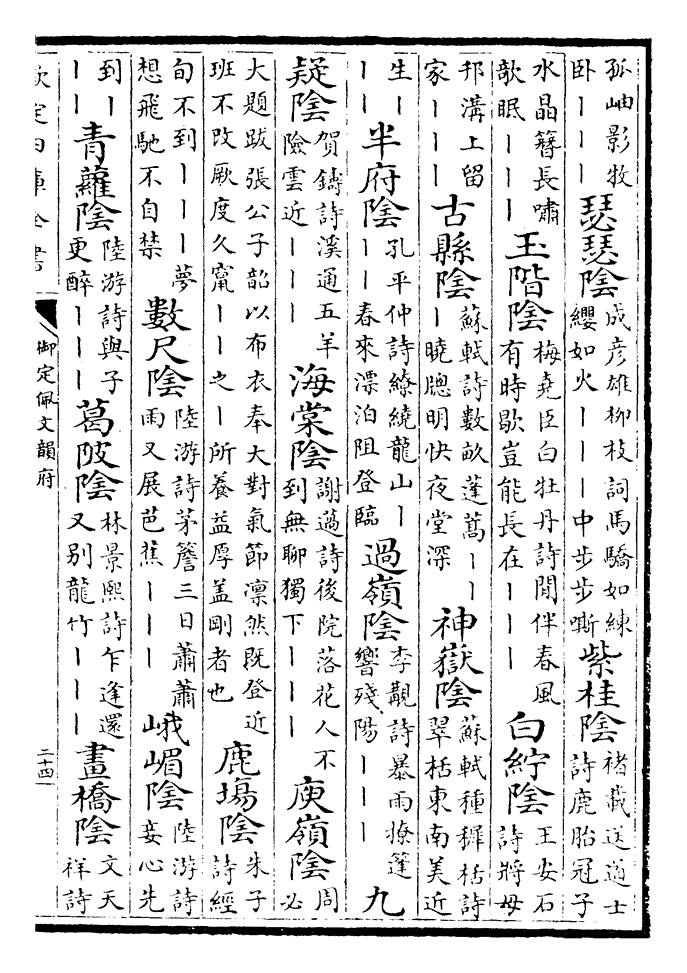 孤岫影牧卧丨丨丨瑟瑟陰成彦雄柳枝詞馬驕如練纓如火丨丨丨中步步嘶紫桂陰褚載送道士詩鹿胎冠子
水晶簪長嘯歌眠丨丨丨玉階陰梅堯臣白牡丹詩閒伴春風有時歇豈能長在丨丨丨白紵陰王安石詩將母
邗溝上留家丨丨丨古縣陰蘇軾詩數畝蓬蒿丨丨丨曉牕明快夜堂深神嶽陰蘇軾種穉栝詩翠栝東南美近
生丨丨丨半府陰孔平仲詩繚繞龍山丨丨丨春來漂泊阻登臨過嶺陰李覯詩暴雨撩篷響殘陽丨丨丨九
疑陰賀鑄詩溪通五羊險雲近丨丨丨海棠陰謝薖詩後院落花人不到無聊獨下丨丨丨庾嶺陰周必
大題跋張公子韶以布衣奉大對氣節凛然既登近班不改厥度久竄丨丨之丨所養益厚盖剛者也鹿塲陰朱子詩經
旬不到丨丨丨夢想飛馳不自禁數尺陰陸游詩茅簷三日蕭蕭雨又展芭蕉丨丨丨峨嵋陰陸游詩妾心先
到丨丨丨青蘿陰陸游詩與子更醉丨丨丨葛陂陰林景熙詩乍逢還又别龍竹丨丨丨畫橋陰文天祥詩
欽定四庫全書
御定佩文韻府
二十四